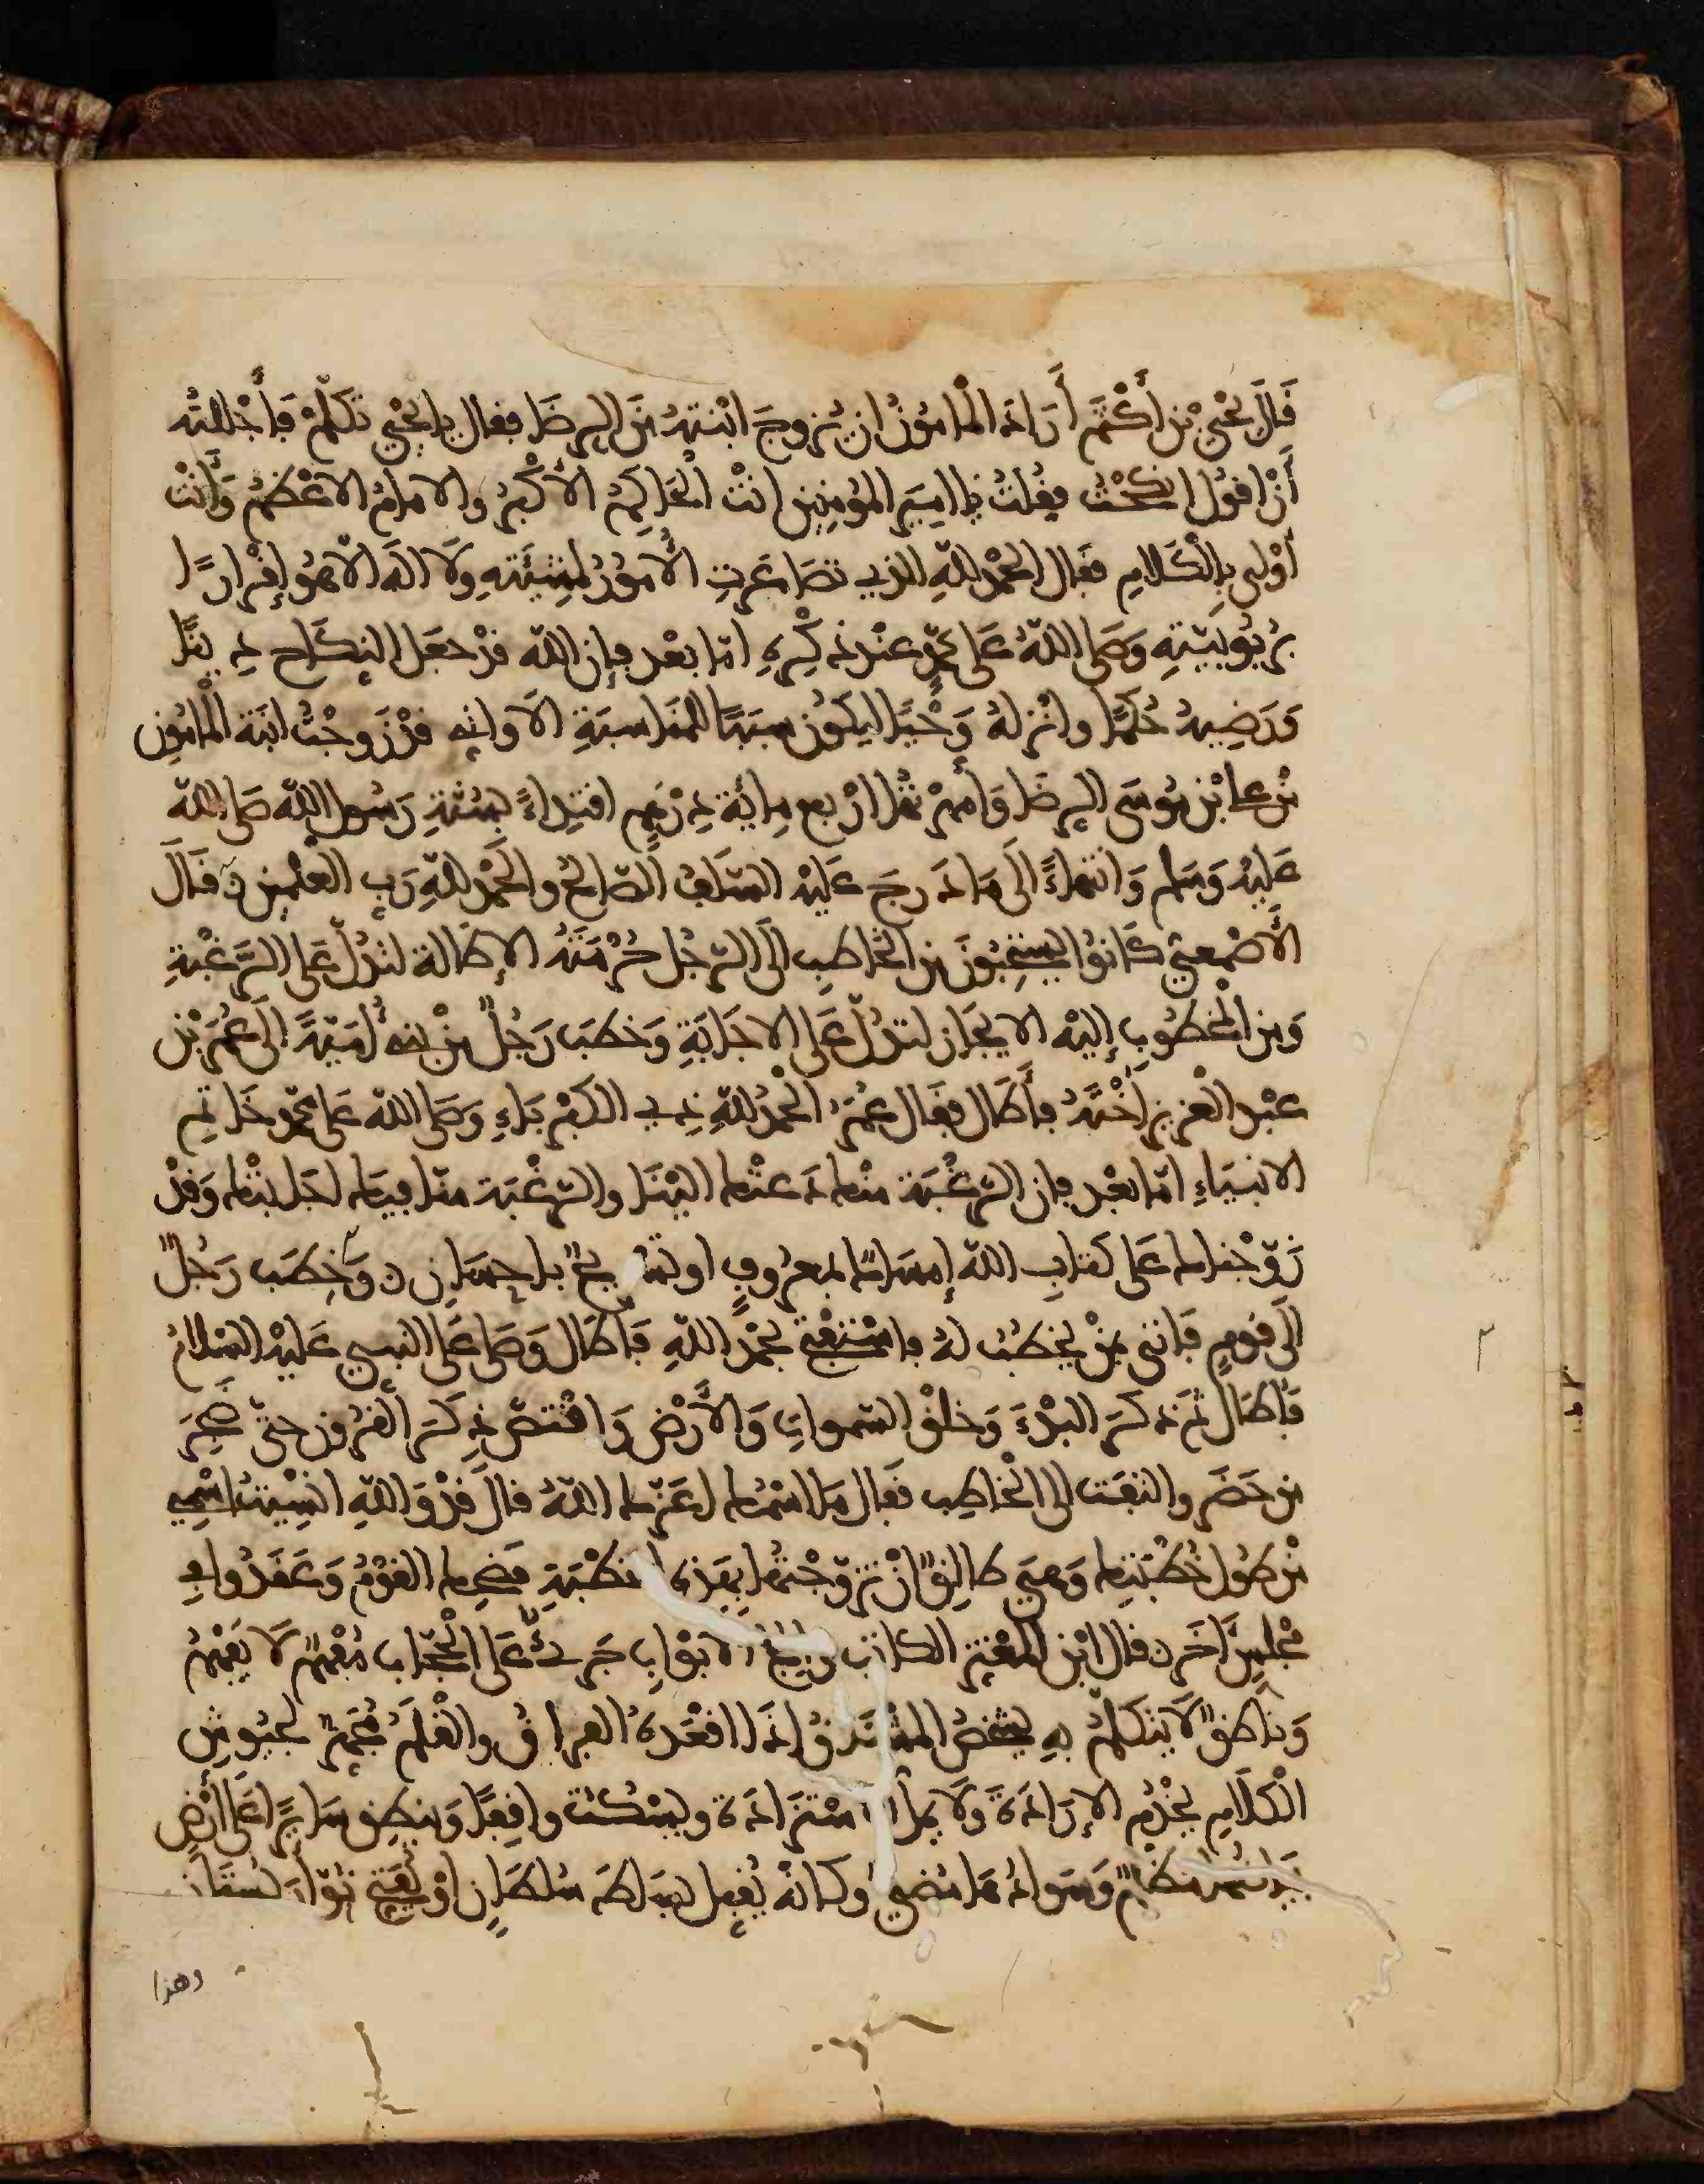 قَالَ يَحْيَى بْن أَكْثَم أَرَادَ الْمَامُونُ ان يُزوجَ ابْنتَهُ مِنَ الرِضَا فقال يا يَحْيى تَكَلّمْ فَأَجْللتُه
أَنْ اقُولَ انكَحْتُ فقُلتُ يا امِيَر المؤمِنِين انتَ الحَاكِمُ الأَكْبرُ والامامُ الاعْظمُ وَأَنْتَ
أَوْلى بِالْكَلامِ فقَال الحَمْدُ للّهِ الذي تصَاغَرتِ الأُمُورُ لمشِيَّتهِ وَلا الهَ الا هُو إقْرارًا
برُبُوبيّتِهِ وَصَلى اللّهُ عَلى محمّدٍ عنْدَ ذِكْرِهِ امّا بعْد فإن اللّه قدْ جعَل النِكَاح دِينًا
وَرَضِيهُ حُكمًا وانْزلهُ وَحْيًا ليكون سَبَبًا للمُنَاسبَةِ الا وانِّي قدْ زَوجْتُ ابنَة الْمَامُونِ
مْن علي بْن مُوسَى الرِضَا وَأمهَرْتُهَا ارْبع مِايَة دِرْهَمٍ اقتِداءً بسُنّةِ رَسُول اللّه صَلى اللّه
عَليْهِ وَسَلم وَانتهَاءً الَى مَا دَرجَ عَليْه السّلَفُ الصّالحُ والحَمْدُ للّهِ رَبِ العٰلمِين ن قَالَ
الأَصْمعِيُّ كَانُوا يسْتحِبُّونَ مِن الخاطِبِ الَى الرّجُل حُرْمَتَهُ الإطَالة لتدُلّ عَلى الرّغْبةِ
وَمِن المخْطُوبِ إليْه الايجَاز لتدُلّ عَلى الاجَابَةِ وَخطَب رَجُلٌ مِنْ بني أُمَيّةَ الَى عُمَر بْن
عبْد العَزيز أخْتَهُ فأَطَال فقَال عُمَر الحْمدُ للّهِ ذِي الكبْرِيَاءِ وَصَلى اللّه عَلى محمّدٍ خَاتم
الانبيَاءِ امّا بعْد فإن الرّغْبَة منْك دَعتْك اليْنَا والرّغْبَة منّا فيك اجَابتْك وَقدْ
زَوّجْناك عَلى كتابِ اللّه إمسَاكٌ بمعرُوفٍ او تسريحٌ باحسَانٍ ن وَخطَب رَجُلٌ
الَى قومٍ فَاتى بمَنْ يخطُبُ لهُ فاسْتفْتحَ بحَمْدِ اللّهِ فَأطَال وَصَلى عَلى النبي عَليْه السّلامُ
فَأطَال ثمّ ذكَر البدْءَ وَخلقَ السّمواتِ وَالأَرْضِ وَاقْتصّ ذِكرَ القُرُونِ حتّى ضَجِرَ
مَن حَضَر والتفَت الى الخَاطِب فقَال مَا اسْمُك اعَزّك اللّهُ قالَ قدْ وَاللّهِ انْسِيتُ اسْمِي
مْن طُول خُطْبتِك وَهيَ طالِقٌ انْ تزوّجْتُها بِهَذِه الخطْبَةِ فضَحِك القوْمُ وَعَقَدُوا في
مجْلِسٍ آخَر ن قال ابْن المعْتز الكتابُ والجُ الابْوابِ جَرئٌ عَلى الحُجّاب مُفْهمٌ لا يَفْهمُ
وَناطقٌ لا يتكلّمُ بهِ يشخَصُ المشْتاقُ اذَا اقْعَدهُ الفِراقُ والقَلمُ مُجَهّزٌ لجيُوشِ
الْكَلَامِ يخْدُم الإرَادَة وَلا يملُّ اسْتزَادَة ويسْكُتُ واقِفًا وَينطِقُ سَايرًا عَلى أرْضٍ
بيَاضُهَا مظْلمٌ وَسَوادُهَا مُضِيءٌ وَكَانهُ يُقبِّل بسَاط سُلطَانٍ اوْ يُفتّحُ نُوّارَ بُستَان
وهذا